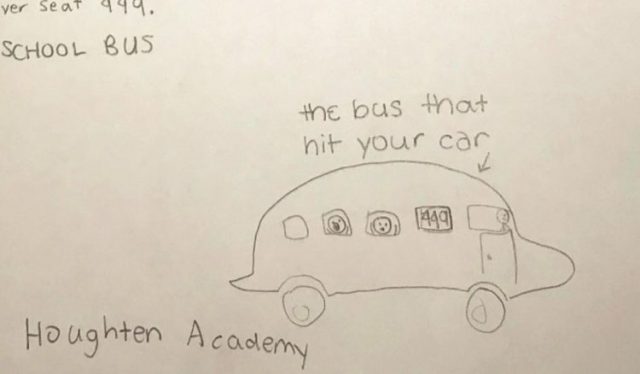 ver seat 449.
SCHOOL BUS
the bus that
hit your car
449
Houghten Academy